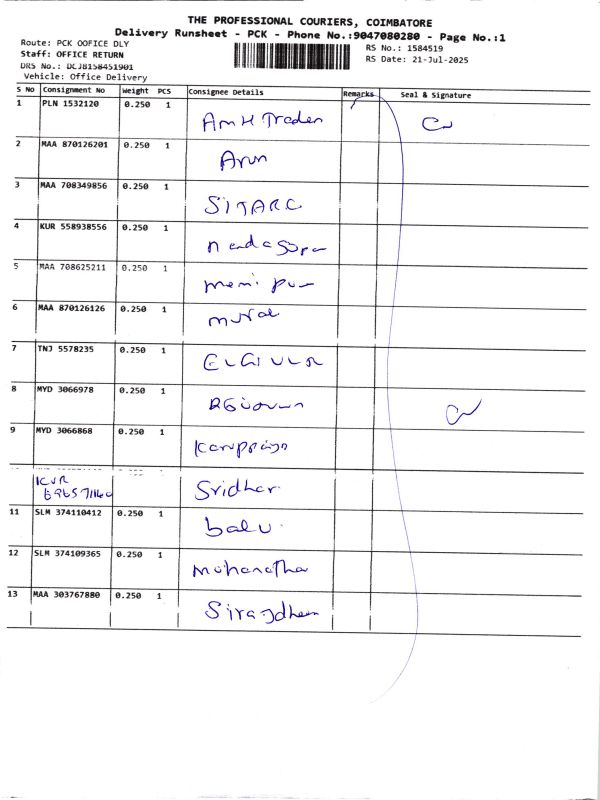 THE PROFESSIONAL COURIERS, COIMBATORE
Delivery Runsheet - PCK - Phone No.:9047080280 - Page No.:1
Route: PCK OOFICE DLY
RS No.: 1584519
Staff: OFFICE RETURN
RS Date: 21-Jul-2025
DRS No.: DCJ8158451901
Vehicle: Office Delivery
S No Consignment No Weight PCS Consignee Details Remarks Seal & Signature
1 PLN 1532120 0.250 1
Traders
2 MAA 870126201 0.250 1
Arun
3 MAA 708349856 0.250 1
SITARC
4 KUR 558938556 0.250 1
5 MAA 708625211 0.250 1
6 MAA 870126126 0.250 1
7 TNJ 5578235 0.250 1
8 MYD 3066978 0.250 1
9 MYD 3066868 0.250 1
KUR
Sridhar
11 SLM 374110412 0.250 1
balu
12 SLM 374109365 0.250 1
13 MAA 303767880 0.250 1